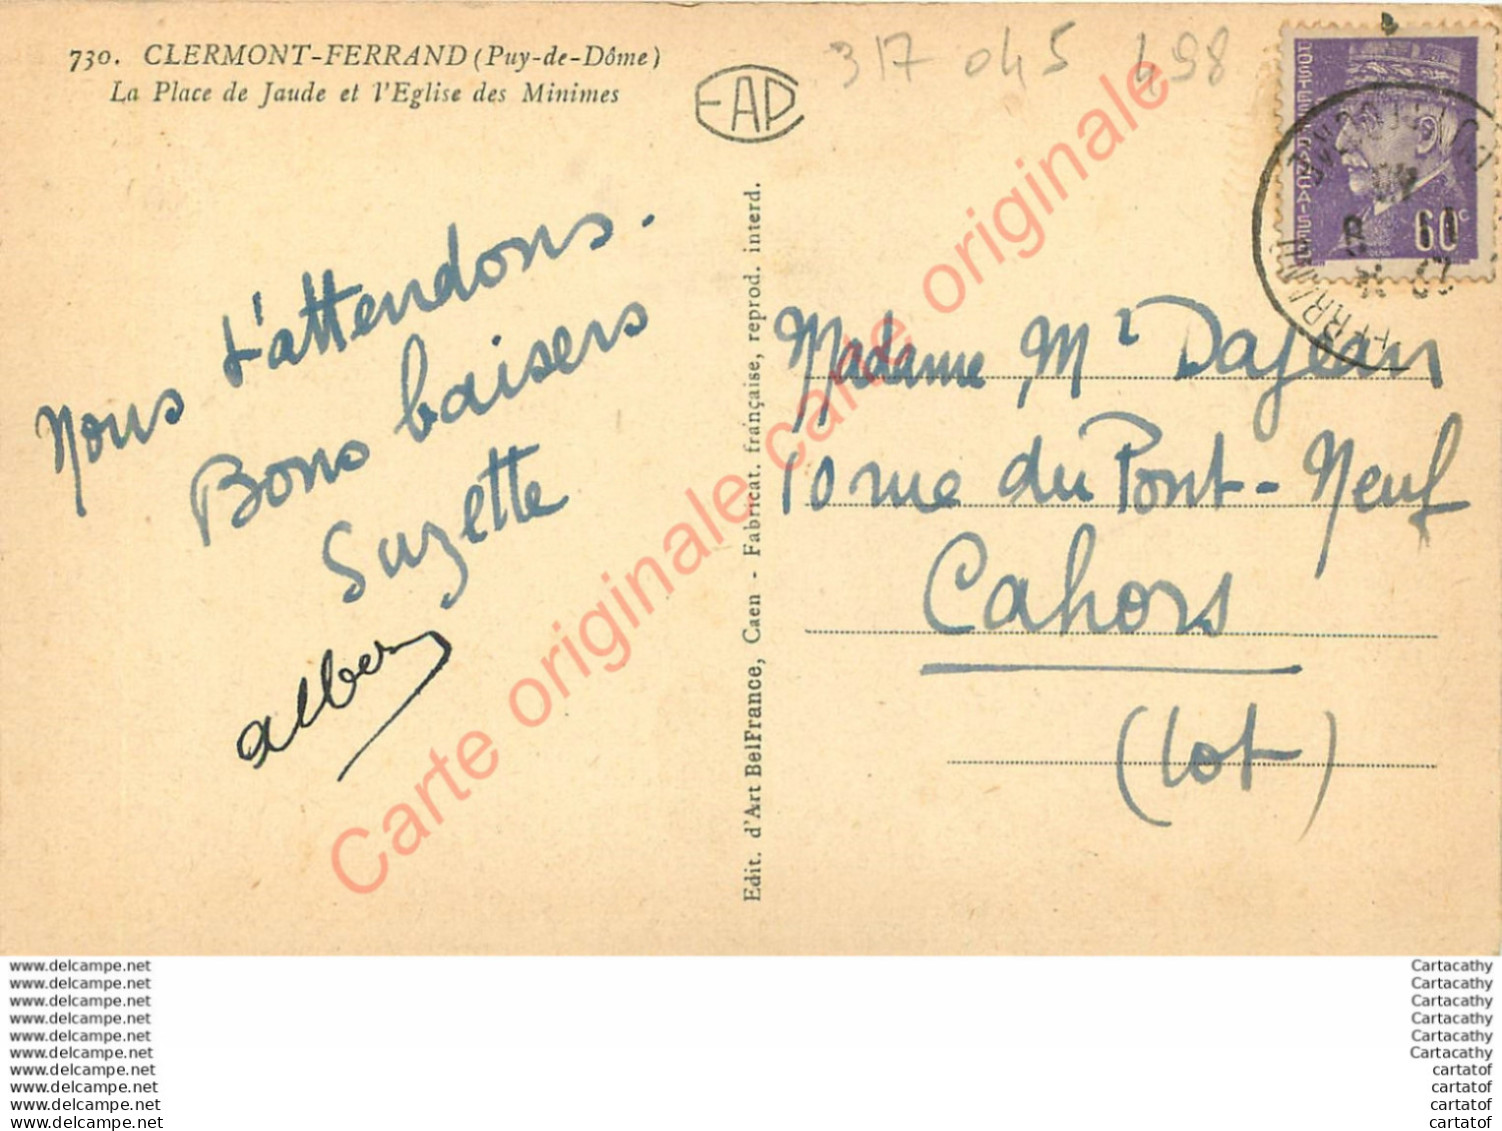 730. CLERMONT-FERRAND (Puy-de-Dôme)
La Place de Jaude et l'Eglise des Minimes
EAP
317 045 498
POSTES FRANÇAISES
60c
Nous t'attendons.
Bons baisers
Suzette
Albert
Edit. d'Art BelFrance, Caen - Fabricat. française, reprod. interd.
Madame Mce Dajean
10 rue du Pont-Neuf
Cahors
(Lot)
Carte originale carte originale
Carte originale
www.delcampe.net
www.delcampe.net
www.delcampe.net
www.delcampe.net
www.delcampe.net
www.delcampe.net
www.delcampe.net
www.delcampe.net
www.delcampe.net
www.delcampe.net
Cartacathy
Cartacathy
Cartacathy
Cartacathy
Cartacathy
Cartacathy
cartatof
cartatof
cartatof
cartatof